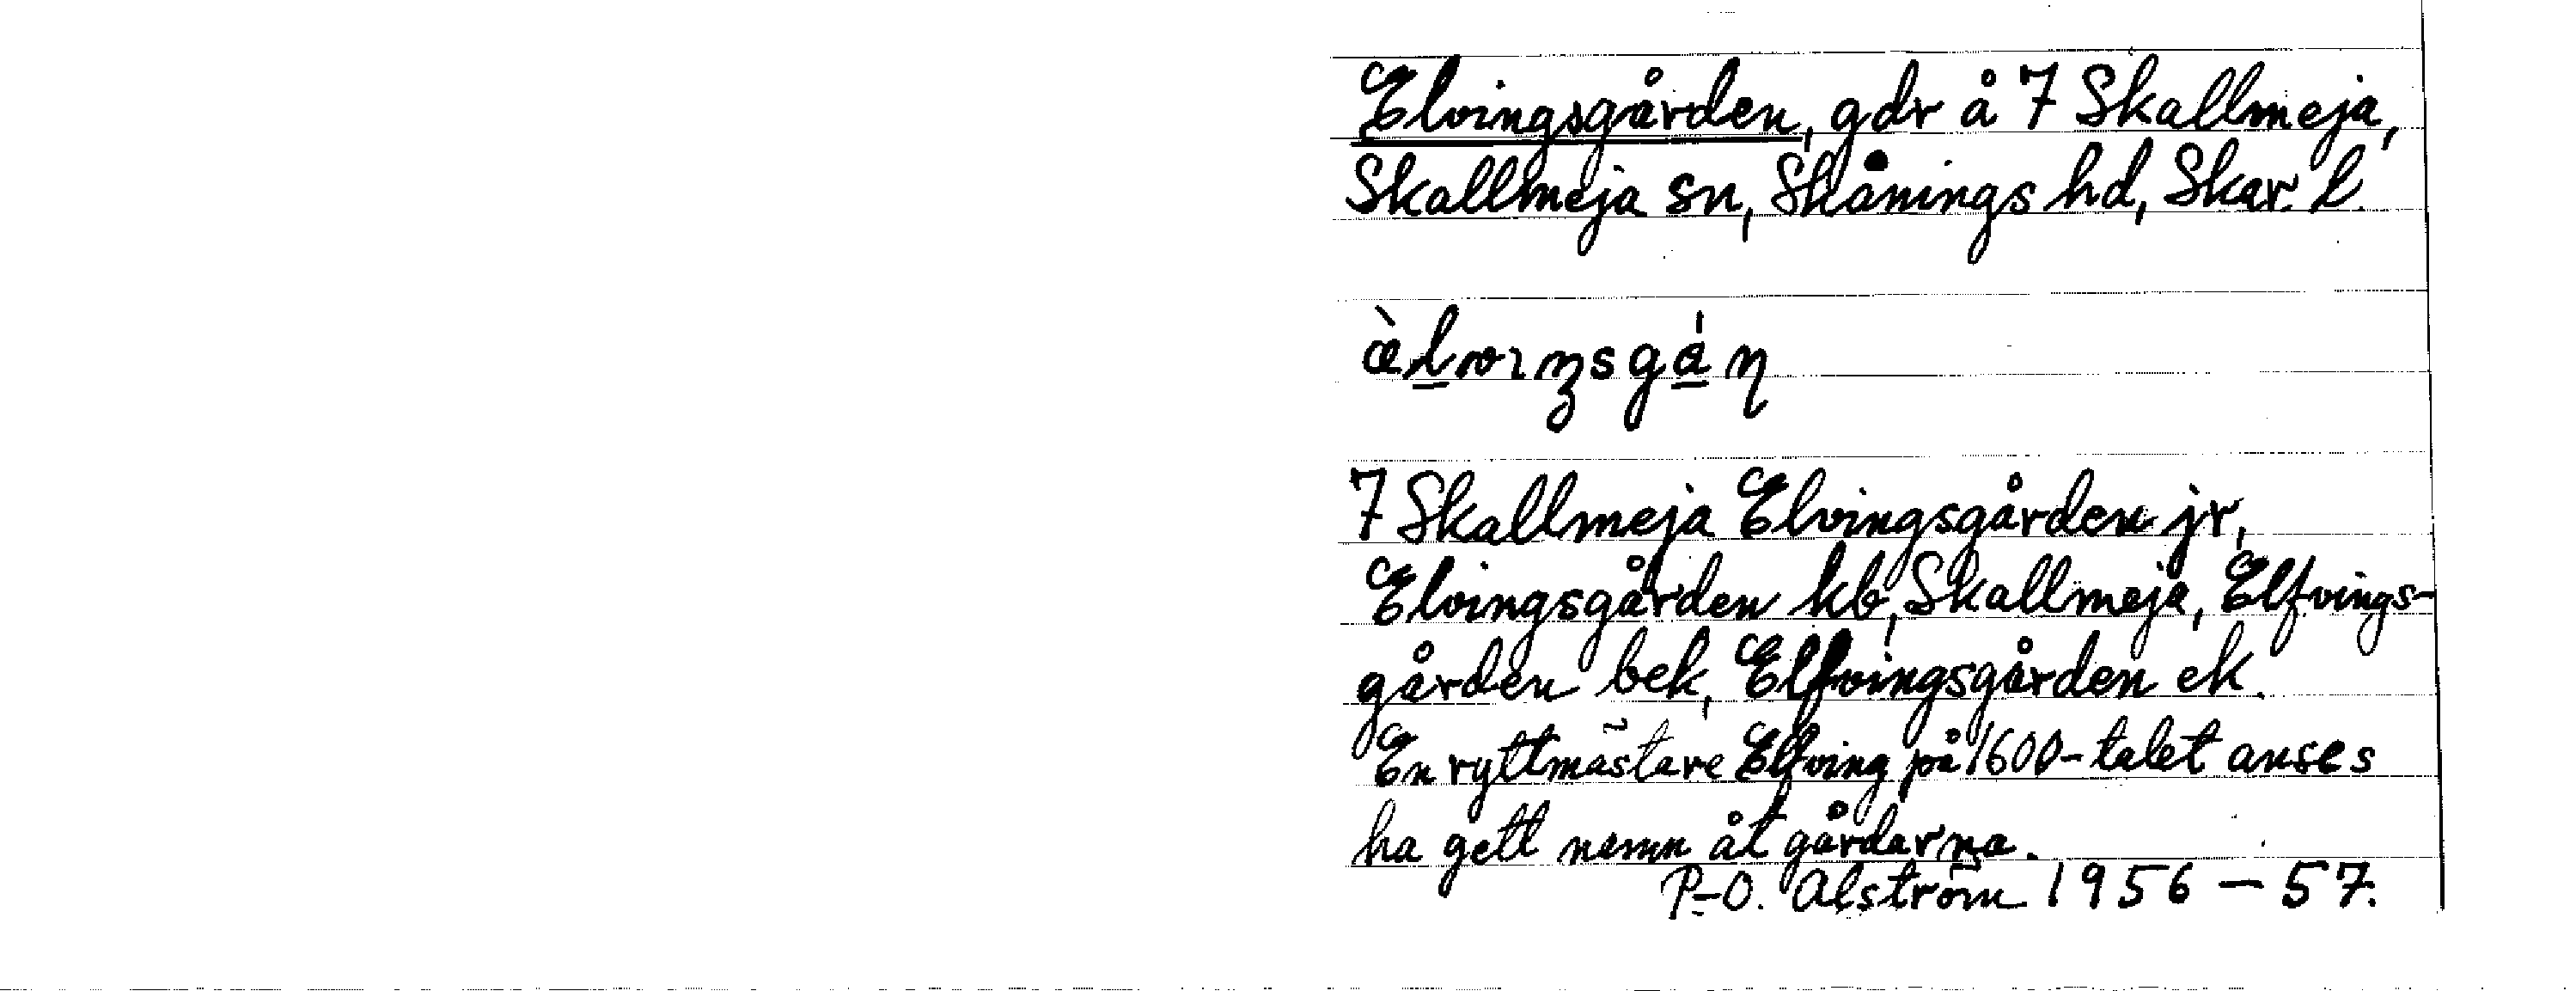 Elvingsgården, gdr å 7 Skallmeja,
Skallmeja sn, Skånings hd, Skar. l.
7 Skallmeja Elvingsgården jr,
Elvingsgården kb, Skallmeja, Elfvings-
gården bek, Elfvingsgården ek.
En ryttmästare Elfving på 1600-talet anses
ha gett namn åt gårdarna.
P-O. Alström 1956 – 57.